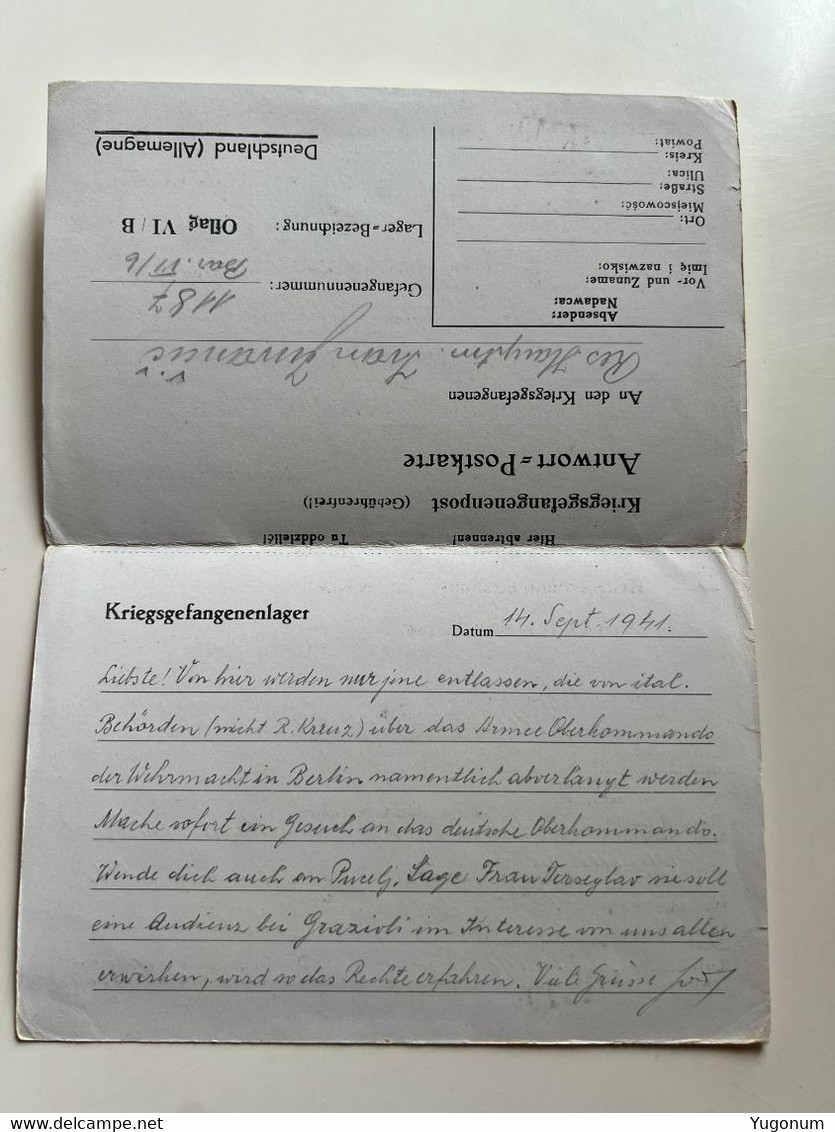 Deutschland (Allemagne)
Lager=Bezeichnung: Oflag VI/B
Gefangenennummer: 1187
Bar. VI/6
Res Hauptm. Ivan
An den Kriegsgefangenen
Antwort=Postkarte
Kriegsgefangenenpost (Gebührenfrei!)
Hier abtrennen! Tu oddzielić!
Absender:
Nadawca:
Vor- und Zuname:
Imię i nazwisko:
Ort:
Miejscowość:
Straße:
Ulica:
Kreis:
Powiat:
Kriegsgefangenenlager
Datum 14. Sept. 1941.
Liebste! Von hier werden nur jene entlassen, die von ital.
Behörden (nicht R. Kreuz) über das Armee Oberkommando
der Wehrmacht in Berlin namentlich abverlangt werden
Mache sofort ein Gesuch an das deutsche Oberkommando.
Wende dich auch an Pucelj. Sage Frau Terseglav sie soll
eine Audienz bei Grazioli im Interesse von uns allen
erwirken, wird so das Rechte erfahren. Viele Grüsse
www.delcampe.net
Yugonum